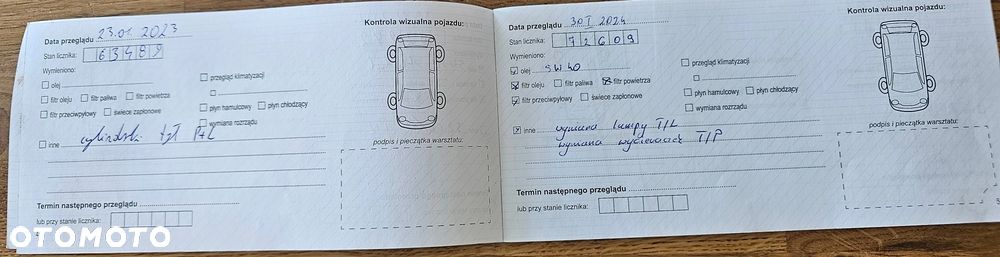 Data przeglądu 23.01.2023
Kontrola wizualna pojazdu:
Stan licznika: 63489
Wymieniono:
olej
przegląd klimatyzacji
filtr oleju filtr paliwa filtr powietrza
filtr przeciwpyłowy świece zapłonowe
płyn hamulcowy płyn chłodzący
wymiana rozrządu
inne cylinderki tył P+L
podpis i pieczątka warsztatu:
Termin następnego przeglądu
lub przy stanie licznika:
OTOMOTO
Data przeglądu 30 I 2024
Kontrola wizualna pojazdu:
Stan licznika: 72609
Wymieniono:
olej 5W40
przegląd klimatyzacji
filtr oleju filtr paliwa filtr powietrza
filtr przeciwpyłowy świece zapłonowe
płyn hamulcowy płyn chłodzący
wymiana rozrządu
inne wymiana lampy T/L
wymiana T/P
podpis i pieczątka warsztatu:
Termin następnego przeglądu
lub przy stanie licznika: